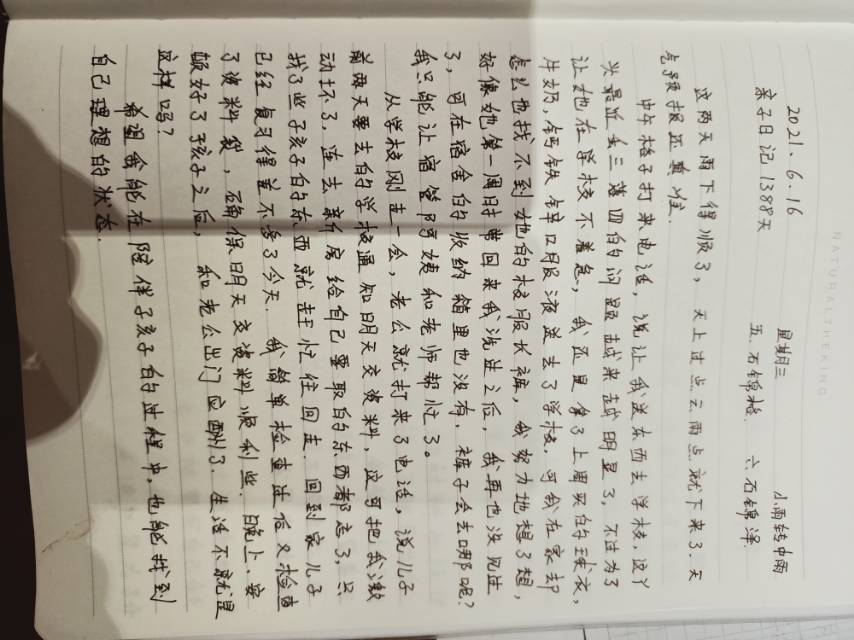 NATURALTHEKING
2021.6.16 星期三 小雨转中雨
亲子日记 1388天 五.石锦 六.石锦泽
这两天雨下得顺了，天上过点云雨点就下来了.天
气预报还真准.
中午格子打来电话，说让我送东西去学校，这丫
头最近丢三落四的问题越来越明显了，不过为了
让她在学校不着急，我还是拿了上周买的球衣，
牛奶，钙铁锌口服液送去了学校，可我在家却
怎么也找不到她的校服长裤，我努力地想了想，
好像她第一周时带回来我洗过之后，我再也没见过
了，可在宿舍的收纳箱里也没有，裤子会去哪呢?
我只能让宿管阿姨和老师帮忙了。
从学校刚走一会，老公就打来了电话，说儿子
前两天要去的学校通知明天交资料，这可把我激
动坏了，连去新房给自己要取的东西都忘了，只
找了些子孩子的东西就赶忙往回走.回到家儿子
已经复习得差不多了今天.我简单检查过后又检查
了资料袋，确保明天交资料顺利些.晚上.安
顿好了孩子之后，和老公出门应酬了.生活不就是
这样吗?
希望我能在陪伴子孩子的过程中，也能找到
自己理想的状态.